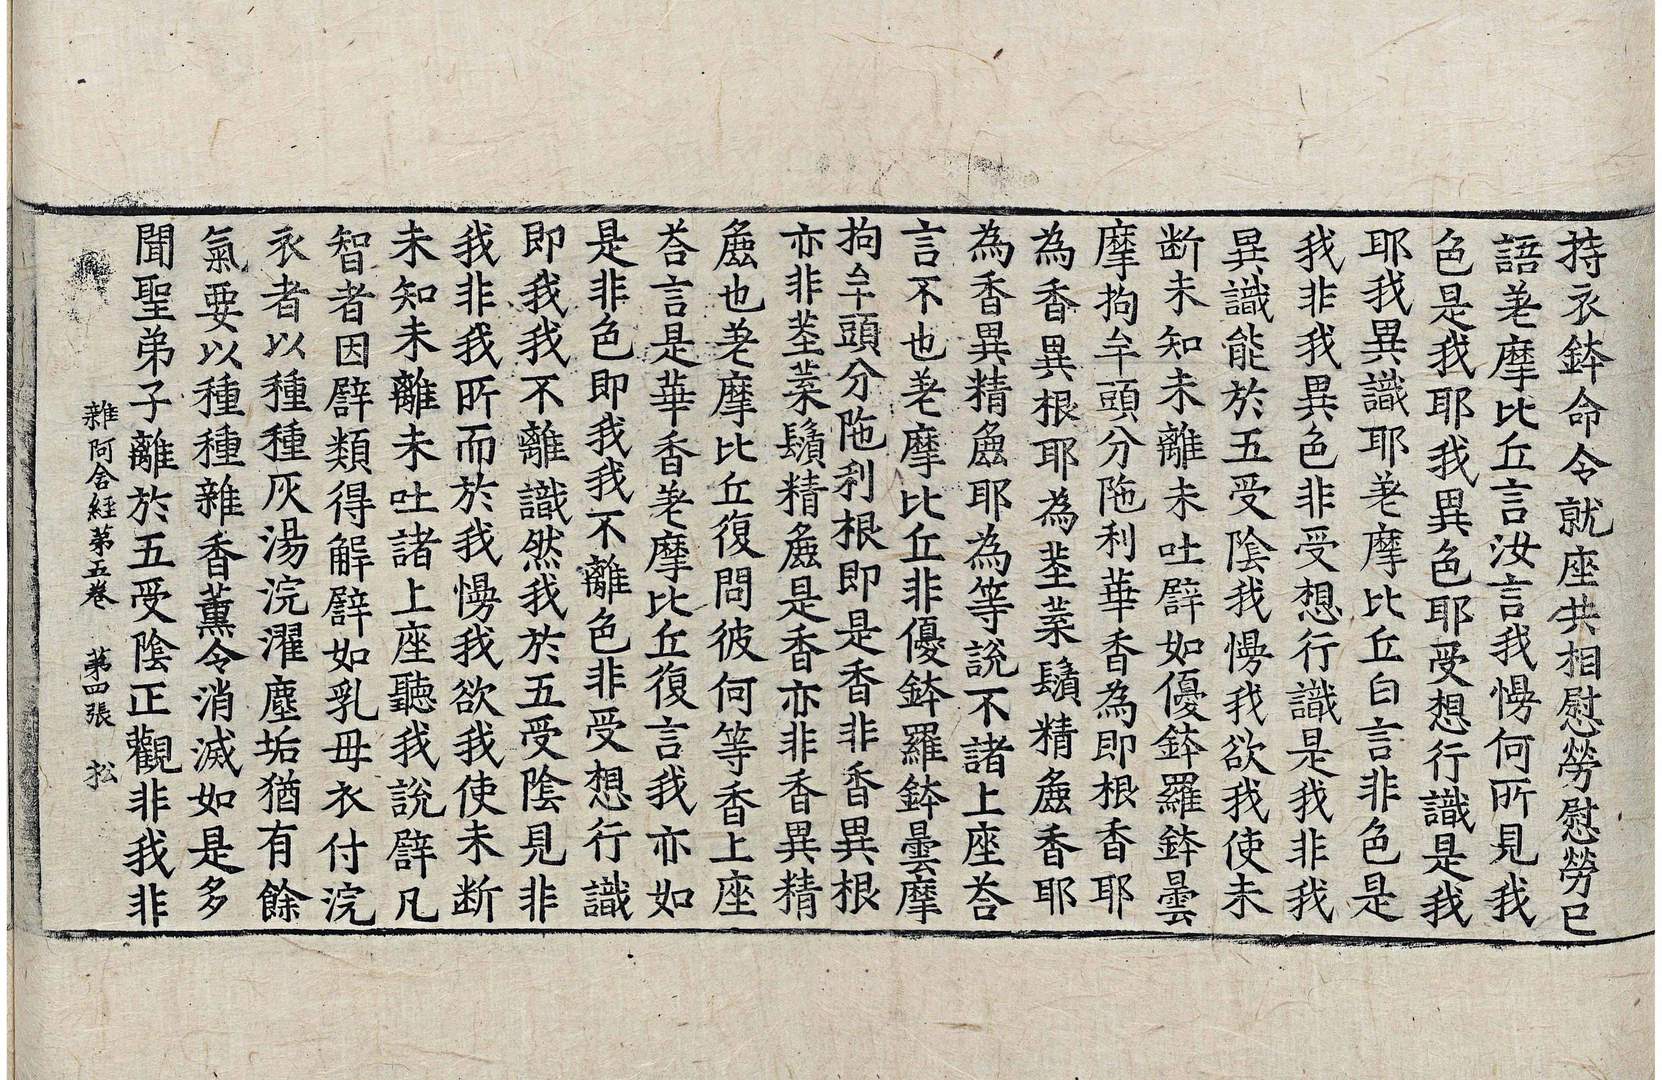 持衣鉢命令就座共相慰勞慰勞已
語差摩比丘言汝言我慢何所見我
色是我耶我異色耶受想行識是我
耶我異識耶差摩比丘白言非色是
我非我異色非受想行識是我非我
異識能於五受陰我慢我欲我使未
断未知未離未吐譬如優鉢羅鉢曇
摩拘牟頭分陁利華香為即根香耶
為香異根耶為莖葉鬚精麁香耶
為香異精麁耶為等說不諸上座荅
言不也差摩比丘非優鉢羅鉢曇摩
拘牟頭分陁利根即是香非香異根
亦非莖葉鬚精麁是香亦非香異精
麁也差摩比丘復問彼何等香上座
荅言是華香差摩比丘復言我亦如
是非色即我我不離色非受想行識
即我我不離識然我於五受陰見非
我非我所而於我慢我欲我使未断
未知未離未吐諸上座聽我說譬凡
智者因譬類得解譬如乳母衣付浣
衣者以種種灰湯浣濯塵垢猶有餘
氣要以種種雜香薰令消滅如是多
聞聖弟子離於五受陰正觀非我非
雜阿含經第五卷 第四張 松